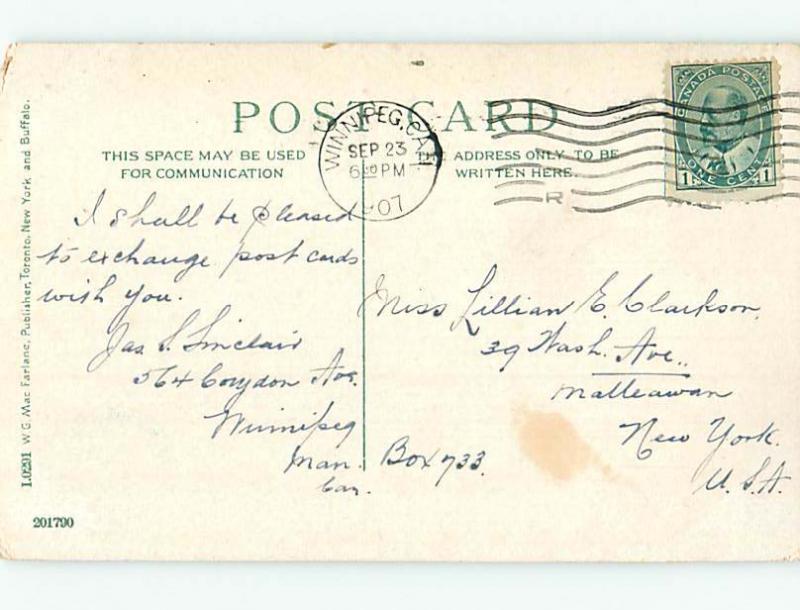 POST CARD
THIS SPACE MAY BE USED
FOR COMMUNICATION
THE ADDRESS ONLY TO BE
WRITTEN HERE.
WINNIPEG, CAN.
SEP 23
PM
07
R
CANADA POSTAGE
1 1
ONE CENT
I shall be pleased
to exchange post cards
with you.
Jas S. Sinclair
564 Corydon Ave.
Winnipeg
Man.
Can.
Box 733.
Miss Lillian E. Clarkson,
39 Wash. Ave.,
Matteawan
New York.
U.S.A.
1.0291 W.G. Mac Farlane, Publisher, Toronto, New York and Buffalo.
201790